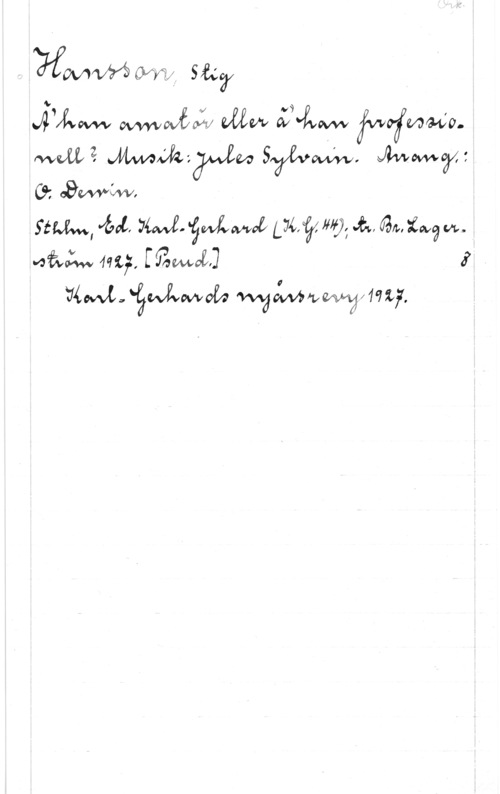 Ork.
Hansson, Stig
Ä'han amatör eller ä'han professio-
nell? Musik: Jules Sylvain. Arrang.:
O. Dewin.
Sthlm, Ed. Karl-Gerhard (K.G. 44); tr. Br. Lager-
ström 1927. [Pseud.] 8
Karl-Gerhards nyårsrevy 1927.